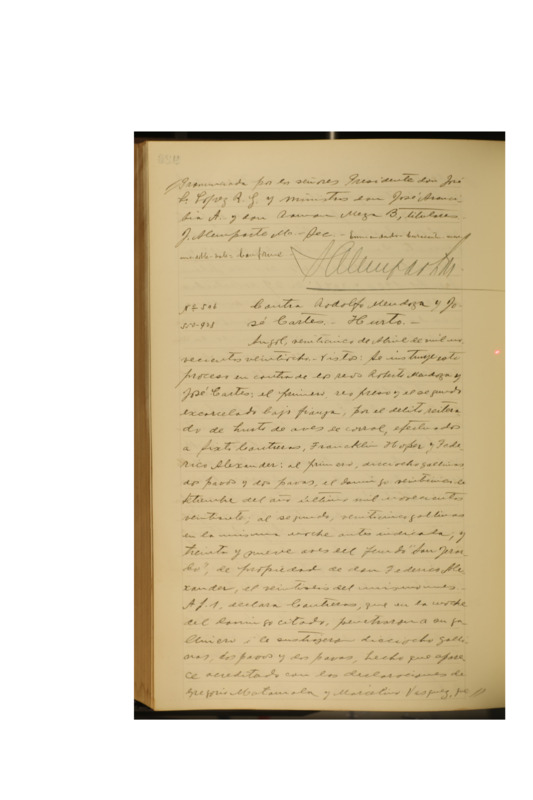 Pronunciada por los señores Presidente don José
L. López R. G. y ministros don José Arancibia
A. y don Roman Meza B, titulares.
J. Alemparte Ms.- Sec.-
Nº 506 Contra Rodolfo Mendoza y Jo-
sé Cartes.- Hurto.-
Angol, veinticinco de Abril de mil no-
vecientos veintiocho.- Vistos: Se instruye este
proceso en contra de los reos Roberto Mendoza y
José Cartes; el primero, reo preso y el segundo
excarcelado bajo fianza, por el delito reitera-
do de hurto de aves de corral, efectuados
a Sixto Contreras, Francklin Hopor y Fede-
rico Alexander: al primero, dieciocho gallinas
dos pavos y dos pavas, el domingo veinticinco de
Setiembre del año último mil novecientos
veintisiete; al segundo, veinticinco gallinas
en la misma noche antes indicada, y
treinta y nueve aves del fundo "San
de propiedad de don Federico Ale-
xander, el veintiseis del mismo mes.-
A f. 1, declara Contreras, que en la noche
del domingo citado, penetraron a su ga-
llinero i le sustrajeron dieciocho galli-
nas, dos pavos y dos pavas, hecho que apare-
ce acreditado con las declaraciones de
Gregorio Matamala y Marcelino Vasquez, que